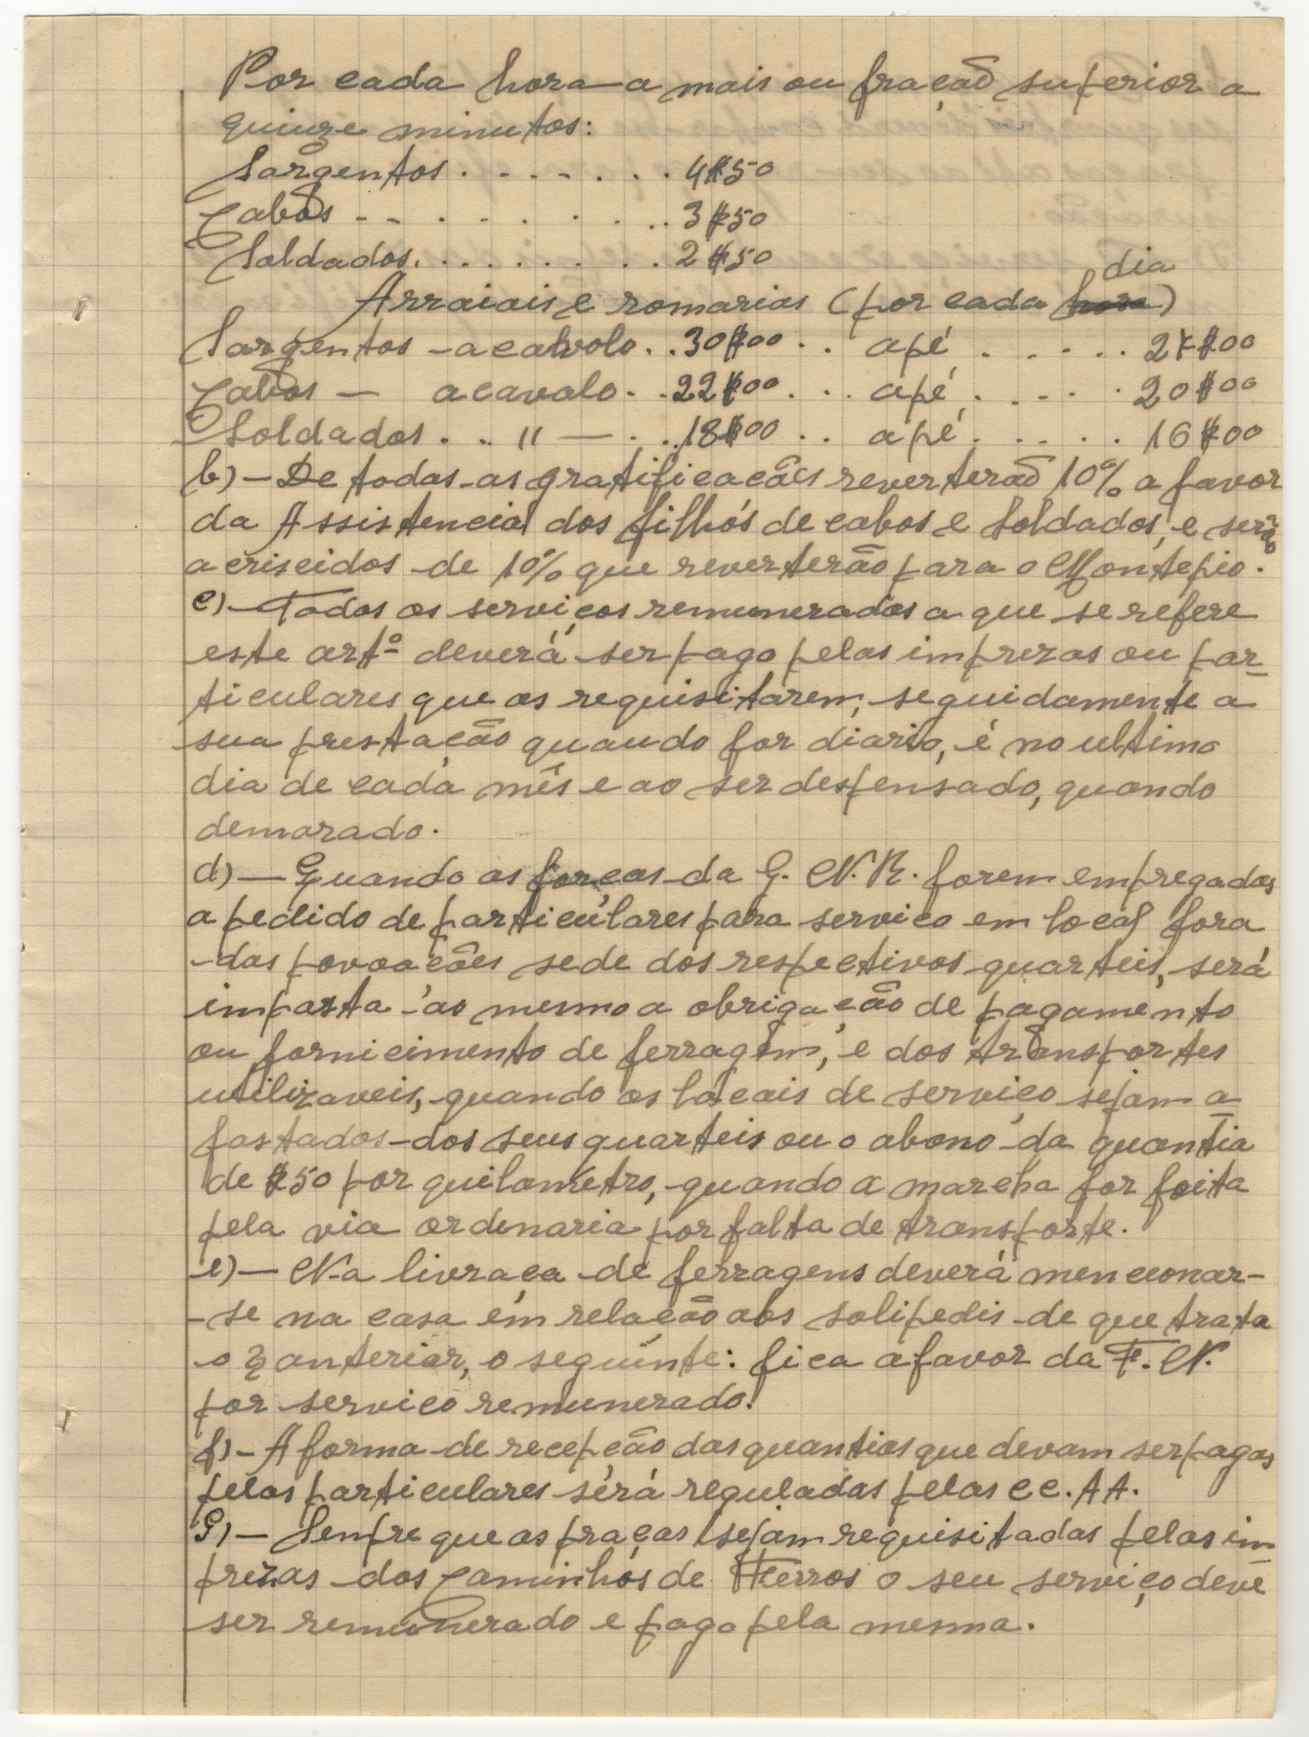 Por cada hora a mais ou fração superior a
quinze minutos:
Sargentos . . . . . . . 4$50
Cabos - - . . . . . . . 3$50
Soldados . . . . . . . . 2$50
Arraiais e romarias (por cada hora dia)
Sargentos - a calvolo . . 30$00 . . apé . . . . . 27$00
Cabos — a cavalo . . 22$00 . . . apé . . . . 20$00
Soldados . . . " — . . 18$00 . . apé . . . . . 16$00
b) - De todas as gratificações reverterão 10% a favor
da Assistencia dos filhós de cabos e Soldados, e serão
acriscidos de 10% que reverterão para o Montepio.
c) - Todos os serviços remunerados a que se refere
este artº deverá ser pago pelas imprezas ou par-
ticulares que os requisitarem, seguidamente a
sua prestação quando for diario, é no ultimo
dia de cada mês e ao ser despensado, quando
demorado.
d) — Quando as forças da G. N. R. forem empregadas
a pedido de particulares para serviço em local fora
das povoações sede dos respectivos quarteis, será
imposta ao mesmo a obrigação de pagamento
ou fornicimento de ferragem, e dos transportes
utilizaveis, quando os locais de serviço sejam a
fastados dos seus quarteis ou o abono da quantia
de $50 por quilometro, quando a marcha for feita
pela via ordenaria por falta de transporte.
e) — Na livraça de ferragens deverá mencionar-
- se na casa em relação aos solipedis de que trata
o § anteriar, o seguinte: fica a favor da F. N.
por serviço remunerado.
f) - A forma de recepção das quantias que devam ser pagas
pelos particulares será reguladas pelas CC. AA.
g) — Sempre que as praças sejam requisitadas pelas im
prezas dos Caminhos de Ferros o seu serviço deve
ser remunerado e pago pela mesma.